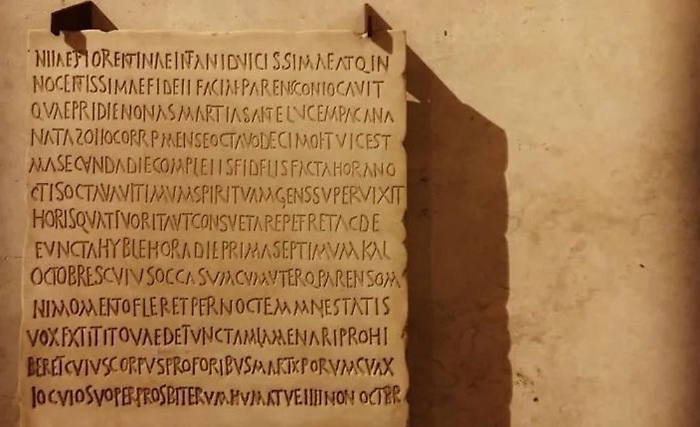 NIIAE FLORENTINAE INFANTI DVLCISSIMAE ATQ IN
NOCENTISSIMAE FIDELI FACTAE PARENS CONLOCAVIT
QVAE PRIDIE NONAS MARTIAS ANTE LVCEM PACANA
NATA ZOILO CORR P MENSE OCTAVO DECIMO ET VICES
MA SECVNDA DIE COMPLETIS FIDELIS FACTA HORA NO
CTIS OCTAVA VLTIMVM SPIRITVM AGENS SVPERVIXIT
HORIS QVATTVOR ITA VT CONSVETA REPETERET AC DE
FVNCTA HYBLE HORA DIE PRIMA SEPTIMVM KAL
OCTOBRES CVIVS OCCASVM CVM VTERQ PARENS OM
NI MOMENTO FLERET PER NOCTEM MAIESTATIS
VOX EXTITIT QVAE DEFVNCTAM LAMENTARI PROHI
BERET CVIVS CORPVS PRO FORIBVS MARTXPORVM CVAX
LOCVLO SVO PER PROSBITERVM HVMATV E IIII NON OCTBR